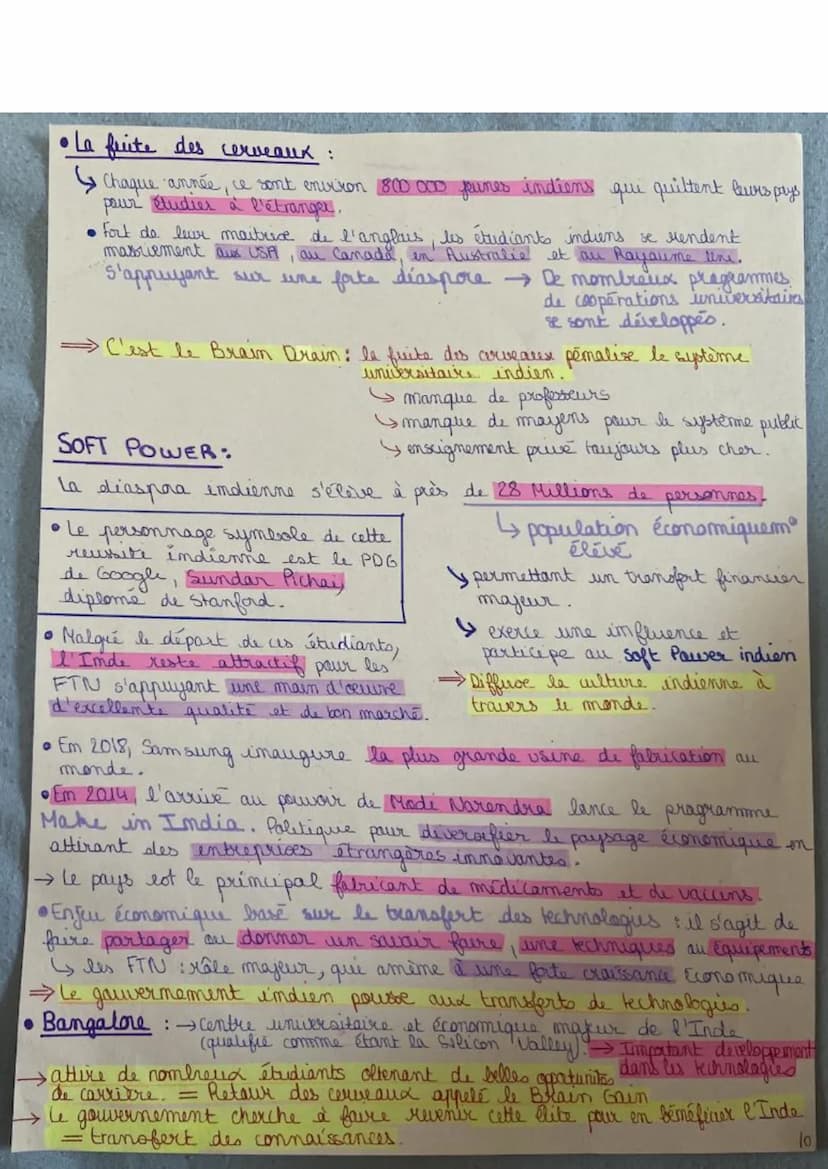 • La fuite des cerveaux :
↳ Chaque année, ce sont environ 800 000 jeunes indiens qui quittent leurs pays
pour étudier à l'étranger.
• Fort de leur maitrise de l'anglais, les étudiants indiens se rendent
massivement aux USA, au Canada, en Australie et au Royaume Uni.
S'appuyant sur une forte diaspora → De nombreux programmes
de coopérations universitaires
se sont développés.
⇒ C'est le Brain Drain : la fuite des cerveaux pénalise le système
universitaire indien.
↳ manque de professeurs
↳ manque de moyens pour le système public
↳ enseignement privé toujours plus cher.
SOFT POWER :
La diaspora indienne s'élève à près de 28 Millions de personnes.
↳ population économiquem°
élévé
↘ permettant un transfert financier
majeur.
↳ exerce une influence et
participe au Soft Power indien
⇒ Diffuse la culture indienne à
travers le monde.
• Le personnage symbole de cette
reussite indienne est le PDG
de Google, Sundar Pichai,
diplomé de Stanford.
• Malgré le départ de ces étudiants,
l'Inde reste attractif pour les
FTN s'appuyant une main d'œuvre
d'excellente qualité et de bon marché.
• En 2018, Samsung inaugure la plus grande usine de fabrication au
monde.
• En 2014, l'arrivé au pouvoir de Modi Narendra lance le programme
Make in India. Politique pour diversifier le paysage économique en
attirant des entreprises étrangères innovantes.
→ Le pays est le principal fabricant de médicaments et de vaccins.
• Enjeu économique basé sur le transfert des technologies : il s'agit de
faire partager ou donner un savoir faire, une techniques ou équipements
↳ les FTN : rôle majeur, qui amène à une forte croissance Economique
⇒ Le gouvernement indien pousse aux transferts de technologies.
• Bangalore : → Centre universitaire et économique majeur de l'Inde
(qualifié comme étant la Silicon Valley). → Important developpement
dans les technologies
→ attire de nombreux étudiants obtenant de belles opportunités
de carrière. = Retour des cerveaux appelé le Brain Gain
→ Le gouvernement cherche à faire revenir cette élite pour en bénéficier l'Inde
= transfert des connaissances.
10